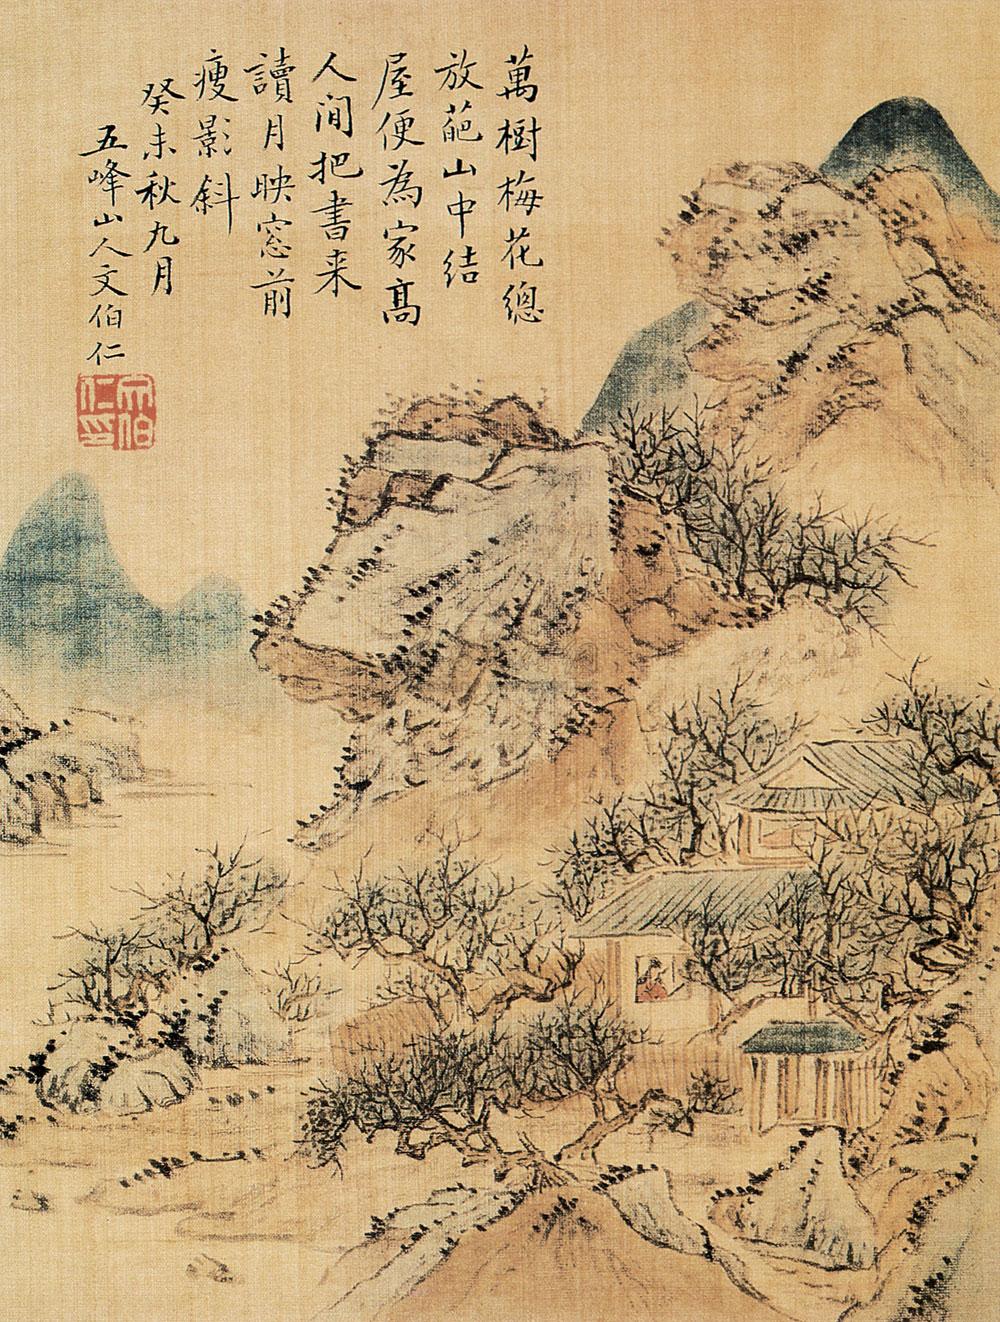 萬樹梅花總
放葩山中結
屋便為家高
人間把書来
讀月映窓前
瘦影斜
癸未秋九月
五峰山人文伯仁
文伯
仁印